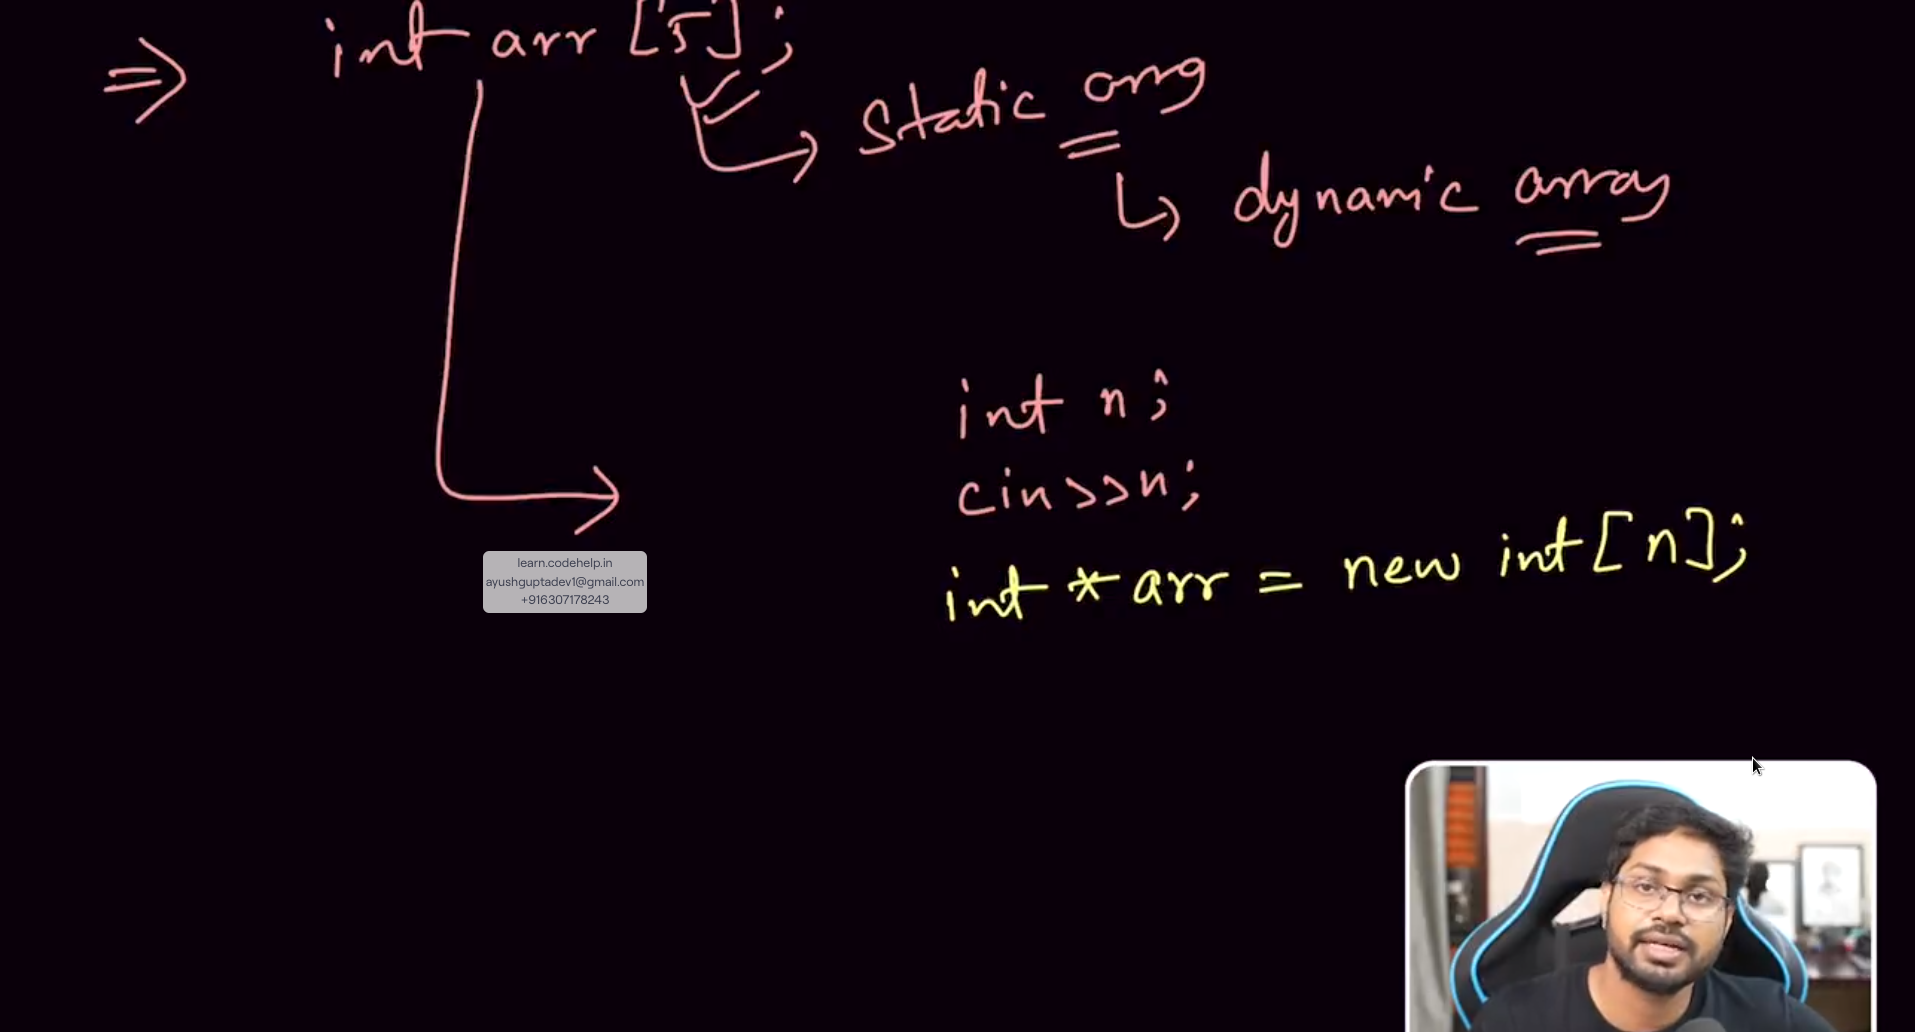 ⇒ int arr [5];
→ static array
↳ dynamic array
int n;
cin>>n;
int * arr = new int [n];
learn.codehelp.in
ayushguptadev1@gmail.com
+916307178243